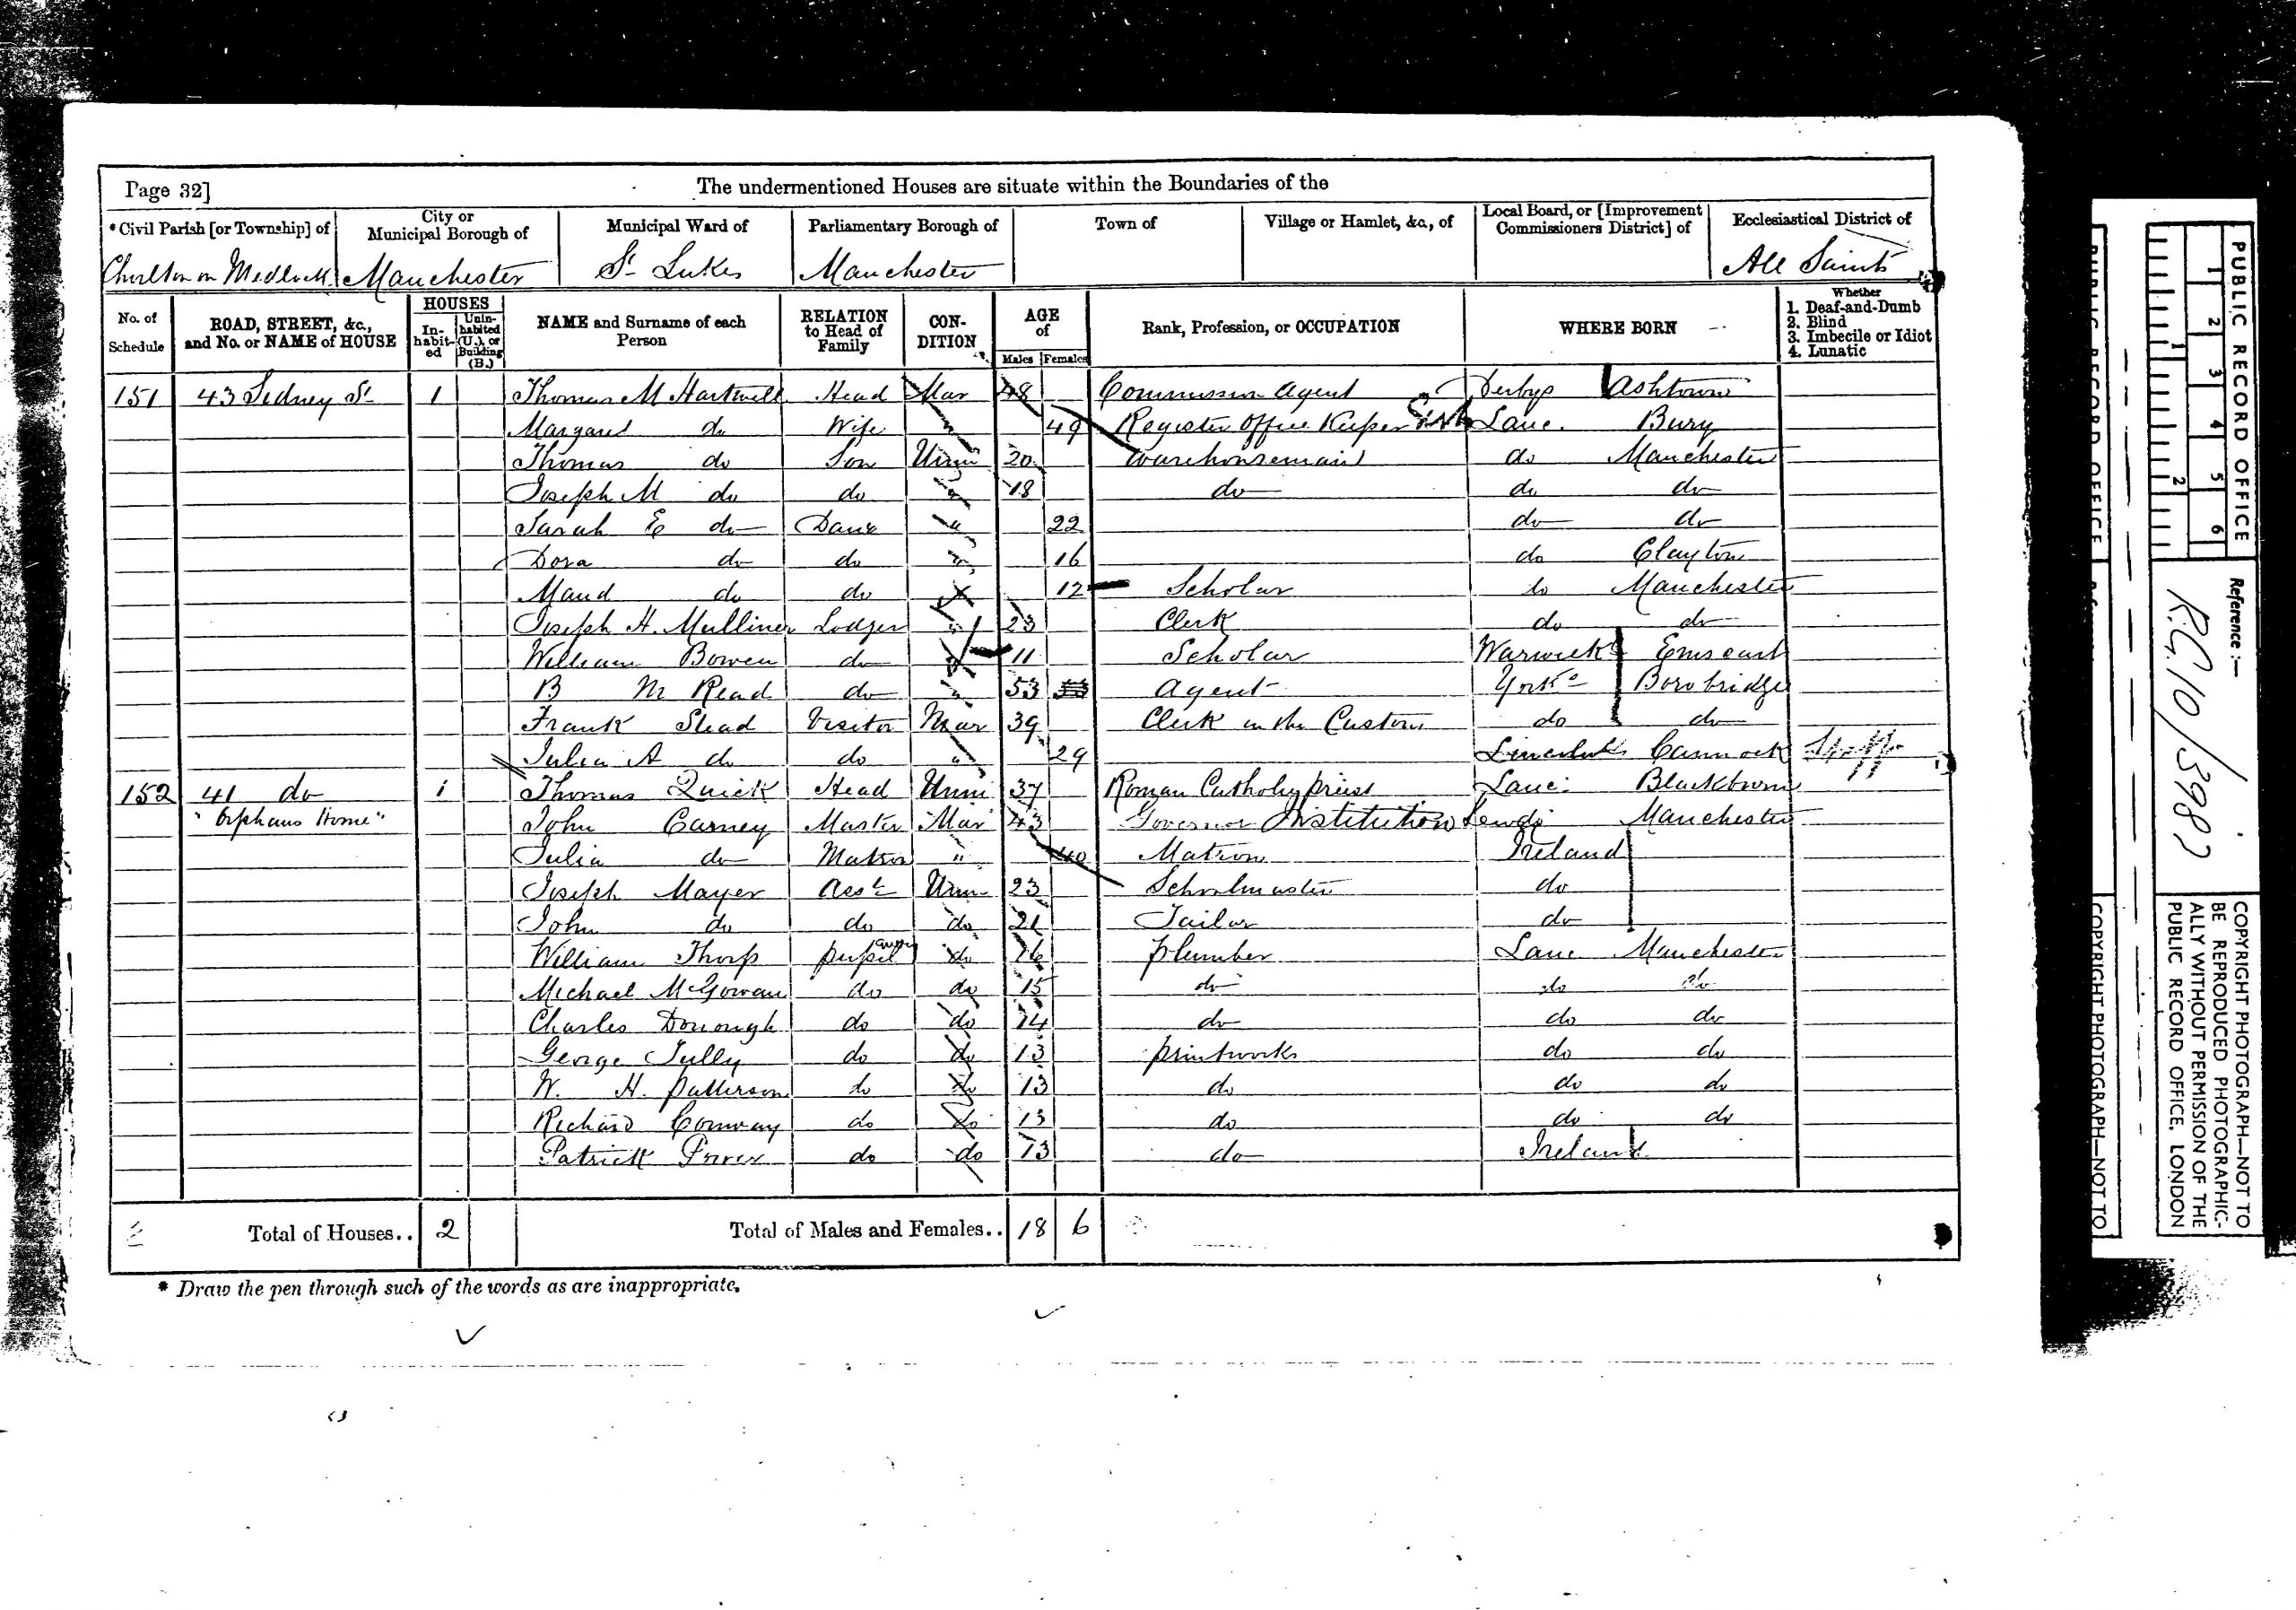 Page 32]
The undermentioned Houses are situate within the Boundaries of the
* Civil Parish [or Township] of
City or Municipal Borough of
Municipal Ward of
Parliamentary Borough of
Town of
Village or Hamlet, &c., of
Local Board, or [Improvement Commissioners District] of
Ecclesiastical District of
Chorlton on Medlock Manchester St Lukes Manchester All Saints
No. of Schedule
ROAD, STREET, &c., and No. or NAME of HOUSE
HOUSES
In-habit-ed
Unin-habited (U.), or Building (B.)
NAME and Surname of each Person
RELATION to Head of Family
CON-DITION
AGE of
Males Females
Rank, Profession, or OCCUPATION
WHERE BORN
Whether
1. Deaf-and-Dumb
2. Blind
3. Imbecile or Idiot
4. Lunatic
151 43 Sidney St 1 Thomas M Hartwell Head Mar 48 Commission Agent Derbys
Margaret do Wife " 49 Register Office Keeper Lanc. Bury
Thomas do Son Unm 20 Warehouseman do Manchester
Joseph M do do " 18 do do do
Sarah E do Daur " 22 do do
Dora do do " 16 do Clayton
Maud do do " 12 Scholar do Manchester
Joseph H. Mulliner Lodger " 23 Clerk do do
William Bowen do " 11 Scholar Warwicks
B M Read do " 53 Agent Yorks Borobridge
Frank Stead Visitor Mar 39 Clerk in the Customs do do
Julia A do do " 29 Cannock Staffs
152 41 do 1 Thomas Quick Head Unm 37 Roman Catholic priest Lanc. Blackburn
"Orphans Home" John Carney Master Mar 43 Governor Institution Manchester
Julia do Matron " 40 Matron Ireland
Joseph Mayer Asst Unm 23 Schoolmaster do
John do do do 21 Tailor do
William Thorp pupil do 16 plumber Lanc Manchester
Michael McGowan do do 15 do do do
Charles Donough do do 14 do do do
George Tully do do 13 printworks do do
W. H. Patterson do do 13 do do do
Richard Conway do do 13 do do do
Patrick Power do do 13 do Ireland
Total of Houses.. 2 Total of Males and Females.. 18 6
* Draw the pen through such of the words as are inappropriate.
PUBLIC RECORD OFFICE
1 2 3 4 5 6
1 2
Reference :—
R.G. 10/3983
COPYRIGHT PHOTOGRAPH—NOT TO
BE REPRODUCED PHOTOGRAPHIC-
ALLY WITHOUT PERMISSION OF THE
PUBLIC RECORD OFFICE, LONDON
PUBLIC RECORD OFFICE
COPYRIGHT PHOTOGRAPH—NOT TO